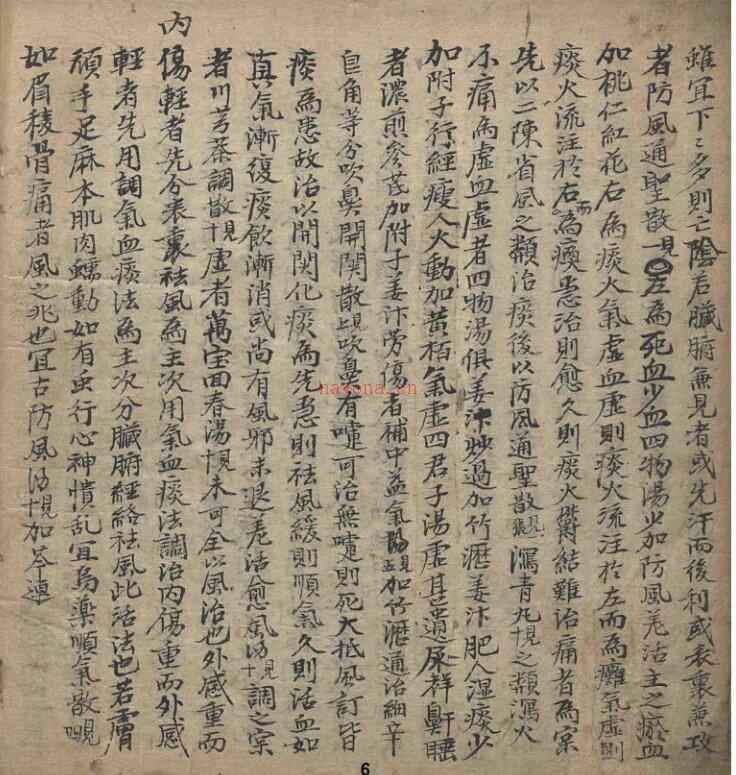 雖宜下〻多則亡陰若臟腑兼見者或先汗而後利或表裏兼攻
者防風通聖散見〇左為死血少血四物湯少加防風羌活主之瘀血
加桃仁紅花右為痰火氣虛血虛則痰火流注於左而為癱氣虛則
痰火流注於右而為瘓惡治則愈久則痰火鬱結難治痛者為实
先以二陳省風之類治痰後以防風通聖散見瀉青丸十見之類瀉火
不痛為虛血虛者四物湯俱姜汴炒過加竹瀝姜汴肥人湿痰少
加附子行經瘦人火動加黃栢氣虛四君子湯虛甚遺尿群鼾睡
者濃煎參芪加附子姜汴劳傷者補中益氣湯見加竹瀝通治細辛
皀角等分吹鼻開関散見吹鼻有嚏可治無嚏則死大抵風訂皆
痰為患故治以開関化痰為先急則祛風緩則順氣久則活血如
真氣漸復痰飲漸消或尚有風邪未退羌活愈風汤十見調之実
者川芎茶調散十見虛者萬宝回春湯十見未可全以風治也外感重而
內
傷輕者先分表裏祛風為主次用氣血痰法調治內傷重而外感
輕者先用調氣血痰法為主次分臟腑經絡祛風此活法也若膚
頑手足麻木肌肉蠕動如有虫行心神憒乱宜烏楽順氣散見
如眉稜骨痛者風之兆也宜古防風汤十見加芩連
nayona.cn
6